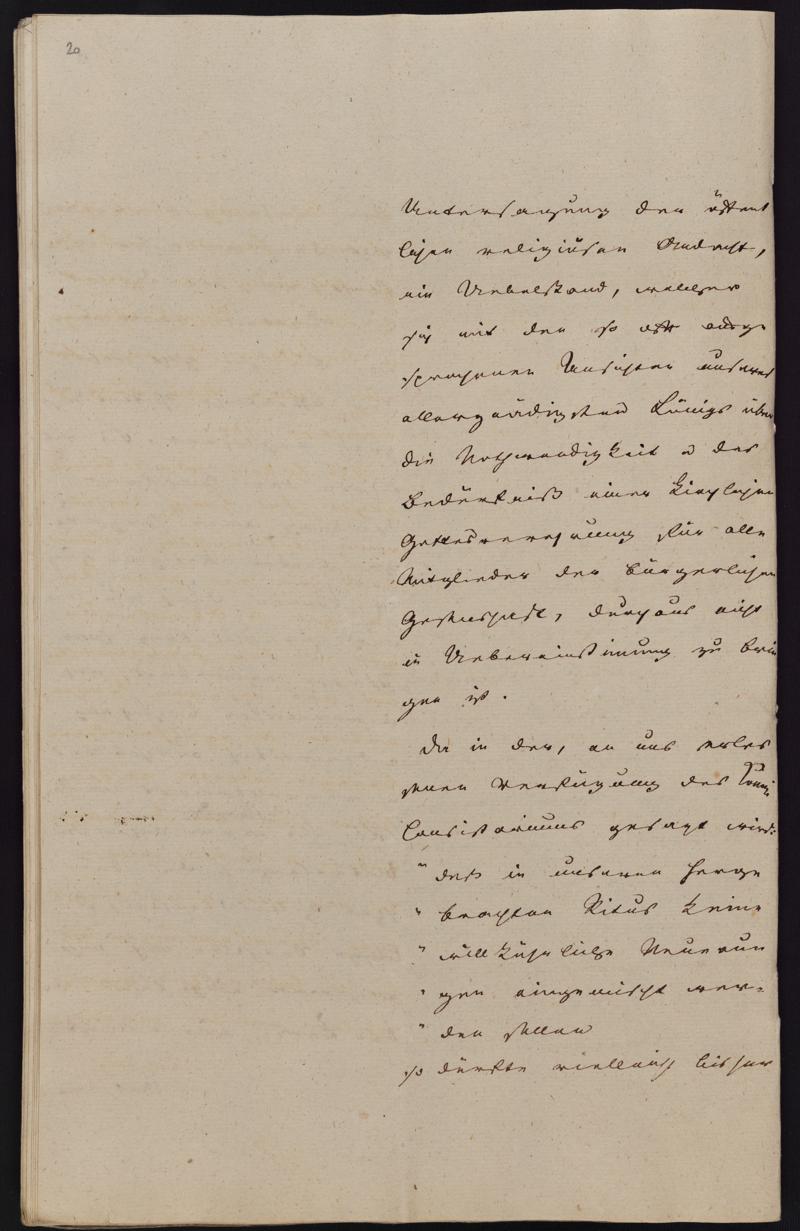 20
Untersagung der öffent
lichen religiösen Andacht,
ein Uebelstand, welcher
sich mit den so oft ausge
sprochenen Ansichten unseres
allergnädigsten Königs über
die Nothwendigkeit u das
Bedürfniß einer kirchlichen
Gottesverehrung für alle
Mitglieder der bürgerlichen
Gesellschaft, durchaus nicht
in Uebereinstimmung zu brin
gen ist.
Da in der, an uns erlas
senen Verfügung des Königl
Consistoriums gesagt wird:
"daß in unseren herge
"brachten Ritus keine
"willkührliche Neuerun
"gen eingemischt wer-
"den sollen
so dürfte vielleicht bisher